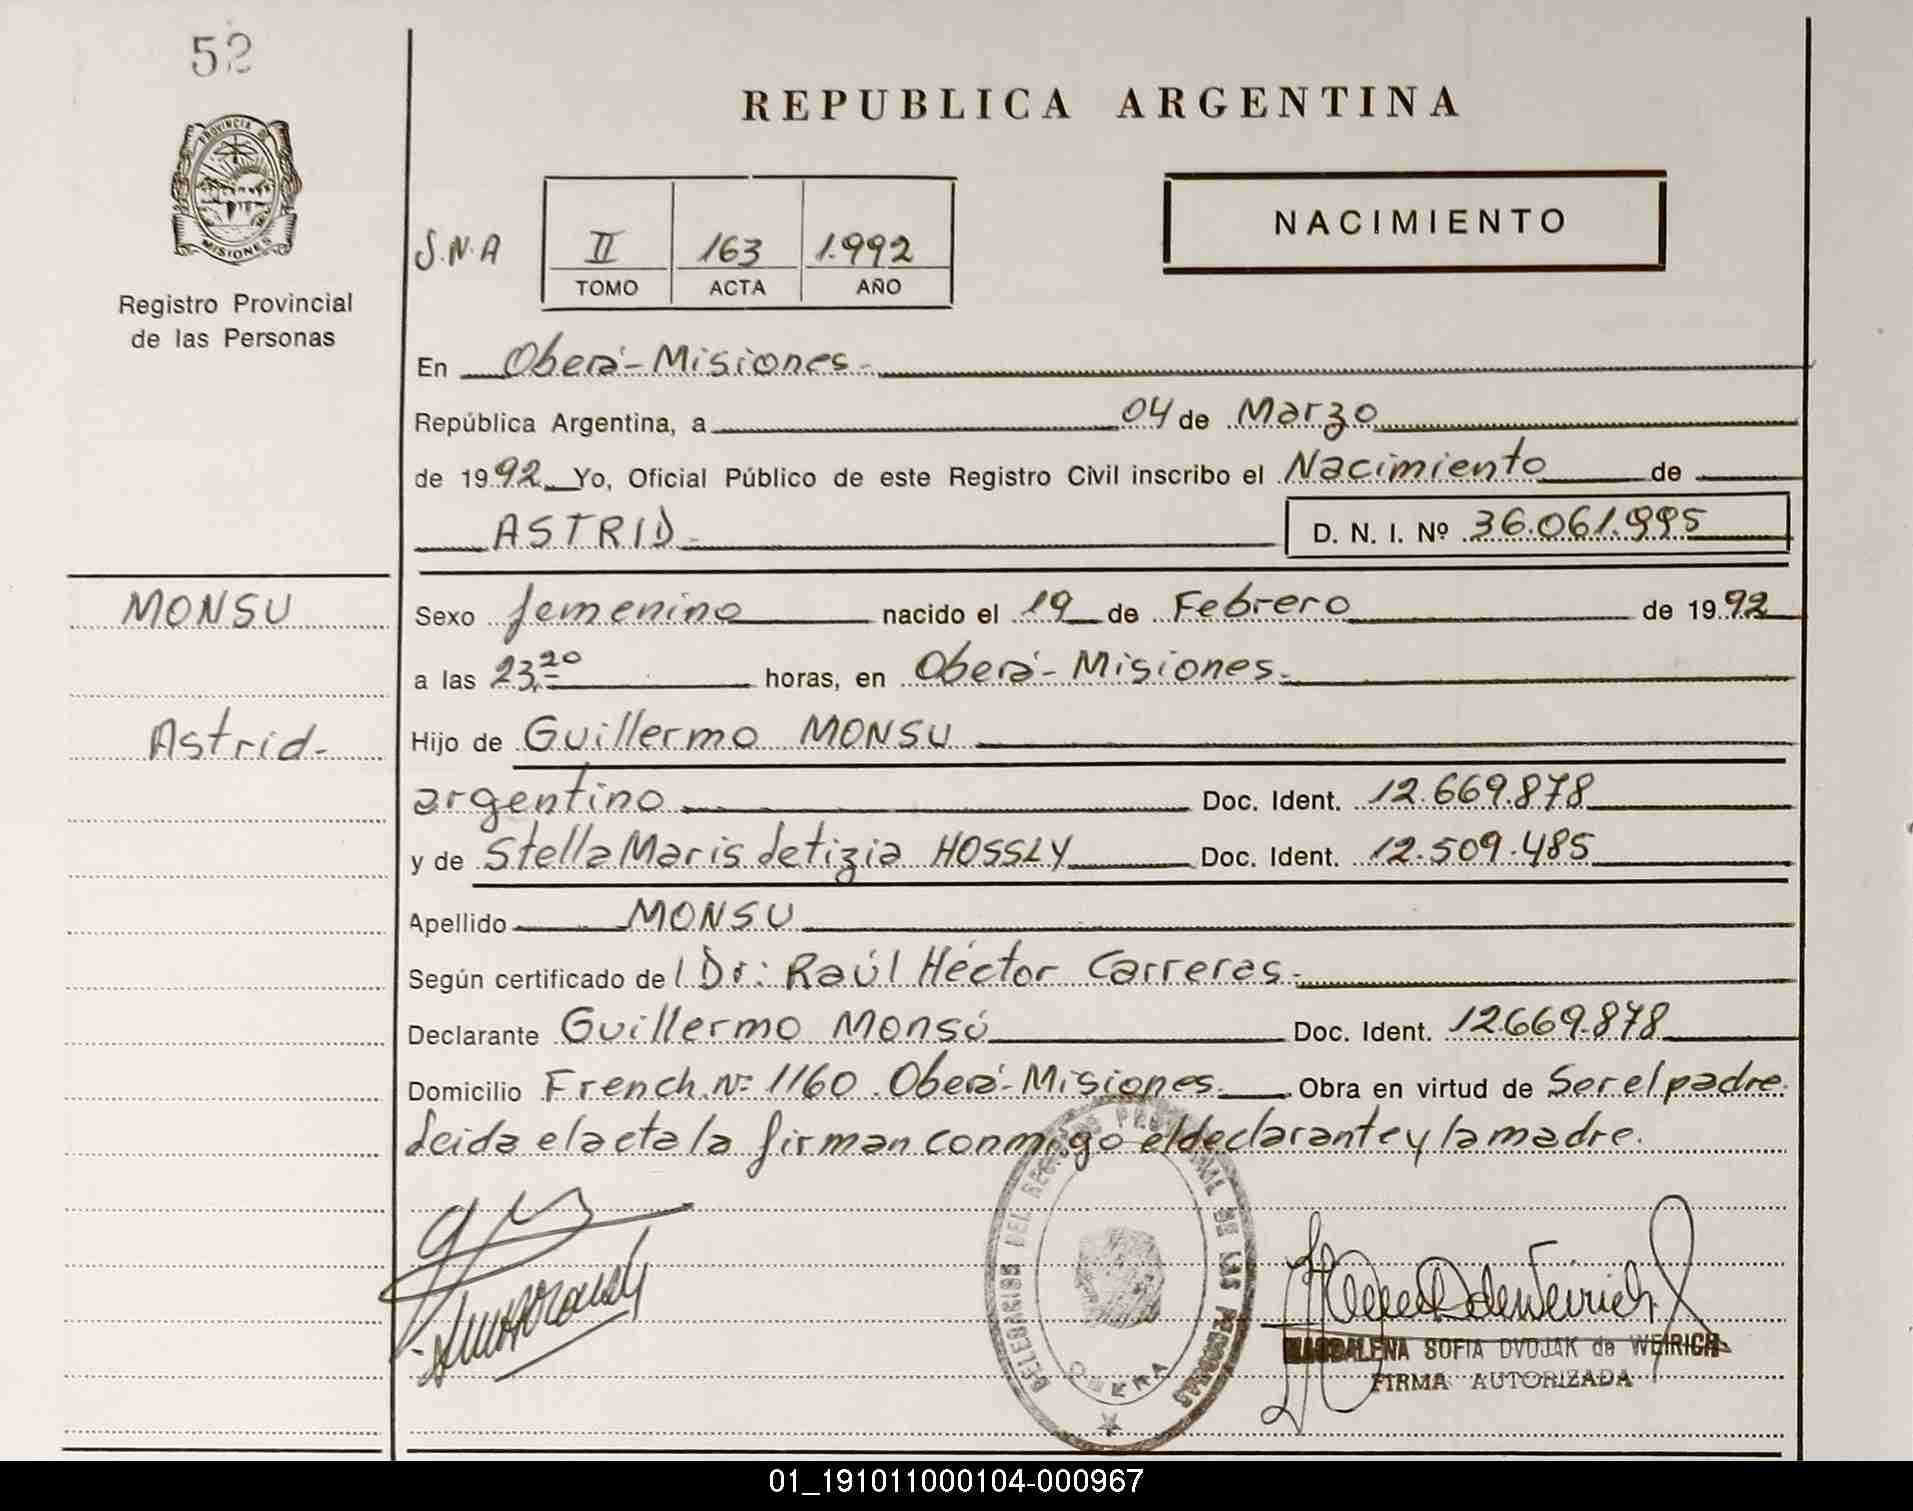 52
REPUBLICA ARGENTINA
PROVINCIA DE
MISIONES
Registro Provincial
de las Personas
S.N.A
II 163 1.992
TOMO ACTA AÑO
NACIMIENTO
En Oberá-Misiones.-
República Argentina, a 04 de Marzo
de 1992 Yo, Oficial Público de este Registro Civil inscribo el Nacimiento de
ASTRID.- D. N. I. Nº 36.061.995
MONSU
Sexo femenino nacido el 19 de Febrero de 1992
a las 23,20 horas, en Oberá-Misiones.-
Astrid-
Hijo de Guillermo MONSU
argentino Doc. Ident. 12.669.878
y de Stella Maris Letizia HOSSLY Doc. Ident. 12.509.485
Apellido MONSU
Según certificado del Dr: Raúl Héctor Carreras.-
Declarante Guillermo Monsú Doc. Ident. 12.669.878
Domicilio French Nº 1160 Oberá-Misiones. Obra en virtud de Ser el padre.
Leida el acta la firman conmigo el declarante y la madre.
DELEGACION DEL REGISTRO PROVINCIAL DE LAS PERSONAS
OBERA
MAGDALENA SOFIA DVOJAK de WEIRICH
FIRMA AUTORIZADA
01_191011000104-000967